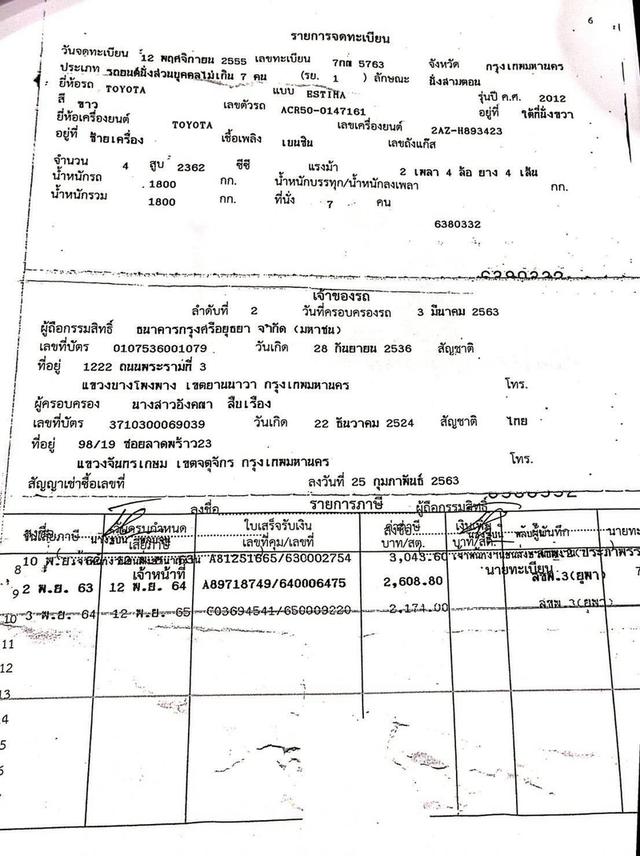 6
รายการจดทะเบียน
วันจดทะเบียน 12 พฤศจิกายน 2555 เลขทะเบียน 7กต 5763 จังหวัด กรุงเทพมหานคร
ประเภท รถยนต์นั่งส่วนบุคคลไม่เกิน 7 คน (รย. 1 ) ลักษณะ นั่งสามตอน
ยี่ห้อรถ TOYOTA แบบ ESTIMA รุ่นปี ค.ศ. 2012
สี ขาว เลขตัวรถ ACR50-0147161 อยู่ที่ ใต้ที่นั่งขวา
ยี่ห้อเครื่องยนต์ TOYOTA เลขเครื่องยนต์ 2AZ-H893423
อยู่ที่ ซ้ายเครื่อง เชื้อเพลิง เบนซิน เลขถังแก๊ส
จำนวน 4 สูบ 2362 ซีซี แรงม้า 2 เพลา 4 ล้อ ยาง 4 เส้น
น้ำหนักรถ 1800 กก. น้ำหนักบรรทุก/น้ำหนักลงเพลา กก.
น้ำหนักรวม 1800 กก. ที่นั่ง 7 คน
6380332
เจ้าของรถ
ลำดับที่ 2 วันที่ครอบครองรถ 3 มีนาคม 2563
ผู้ถือกรรมสิทธิ์ ธนาคารกรุงศรีอยุธยา จำกัด (มหาชน)
เลขที่บัตร 0107536001079 วันเกิด 28 กันยายน 2536 สัญชาติ
ที่อยู่ 1222 ถนนพระรามที่ 3
แขวงบางโพงพาง เขตยานนาวา กรุงเทพมหานคร โทร.
ผู้ครอบครอง นางสาวอังคณา สืบเรือง
เลขที่บัตร 3710300069039 วันเกิด 22 ธันวาคม 2524 สัญชาติ ไทย
ที่อยู่ 98/19 ซอยลาดพร้าว23
แขวงจันทรเกษม เขตจตุจักร กรุงเทพมหานคร โทร.
สัญญาเช่าซื้อเลขที่ ลงวันที่ 25 กุมภาพันธ์ 2563
ลงชื่อ รายการภาษี ผู้ถือกรรมสิทธิ์
วันครบกำหนด ใบเสร็จรับเงิน
เสียภาษี เลขที่คุม/เลขที่ บาท/สต. บาท/สต.
8 10 พ.ย. 62 A81251665/630002754 3,043.60
เจ้าหน้าที่ นายทะเบียน
2 พ.ย. 63 12 พ.ย. 64 A89718749/640006475 2,608.80 ลขพ.3(ยุพา)
10 3 พ.ย. 64 12 พ.ย. 65 C03694541/650009220 2,174.00 ลขพ.3(ยุพา)
11
12
13
4
5
6